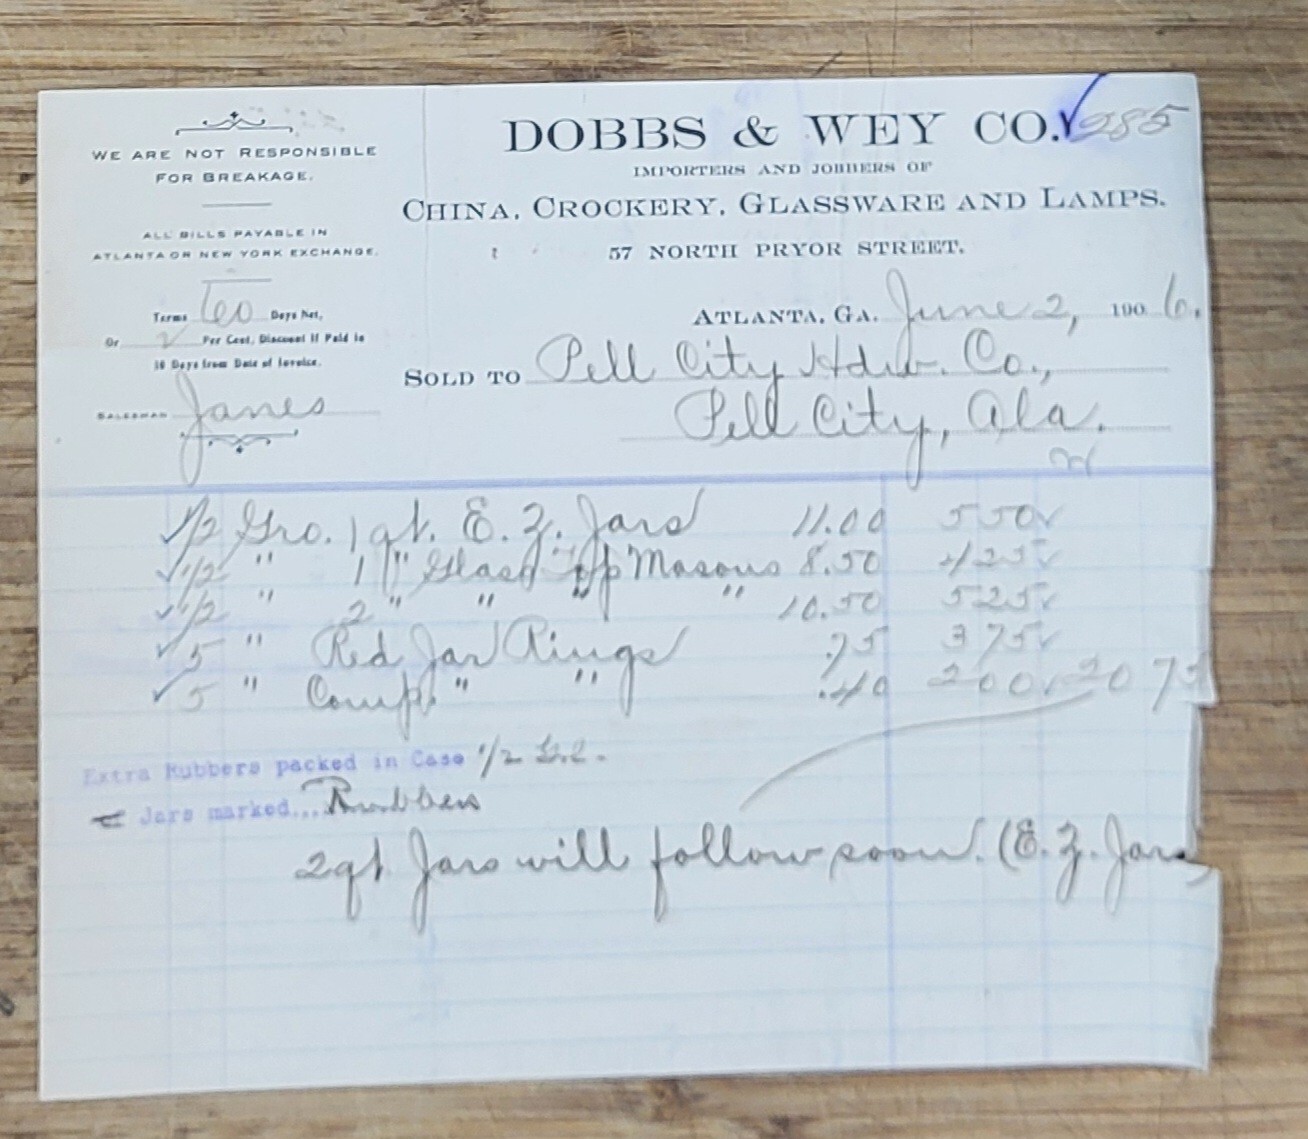 WE ARE NOT RESPONSIBLE
FOR BREAKAGE.
ALL BILLS PAYABLE IN
ATLANTA OR NEW YORK EXCHANGE.
Terms 60 Days Net,
Or 2 Per Cent. Discount If Paid in
10 Days from Date of Invoice.
SALESMAN Janes
DOBBS & WEY CO. 285
IMPORTERS AND JOBBERS OF
CHINA, CROCKERY, GLASSWARE AND LAMPS.
57 NORTH PRYOR STREET.
ATLANTA, GA. June 2, 1906.
SOLD TO Pell City Hdw. Co.,
Pell City, Ala.
1/2 Gro. 1 qt. E. Z. Jars 11.00 5 50
1/2 " 1 " Glass Top Masons 8.50 4 25
1/2 " 2 " " " " 10.50 5 25
5 " Red Jar Rings .75 3 75
5 " Comp. " " .40 2 00 20 75
Extra Rubbers packed in Case 1/2
Jars marked... Rubbers
2qt Jars will follow soon. (E. Z. Jars)